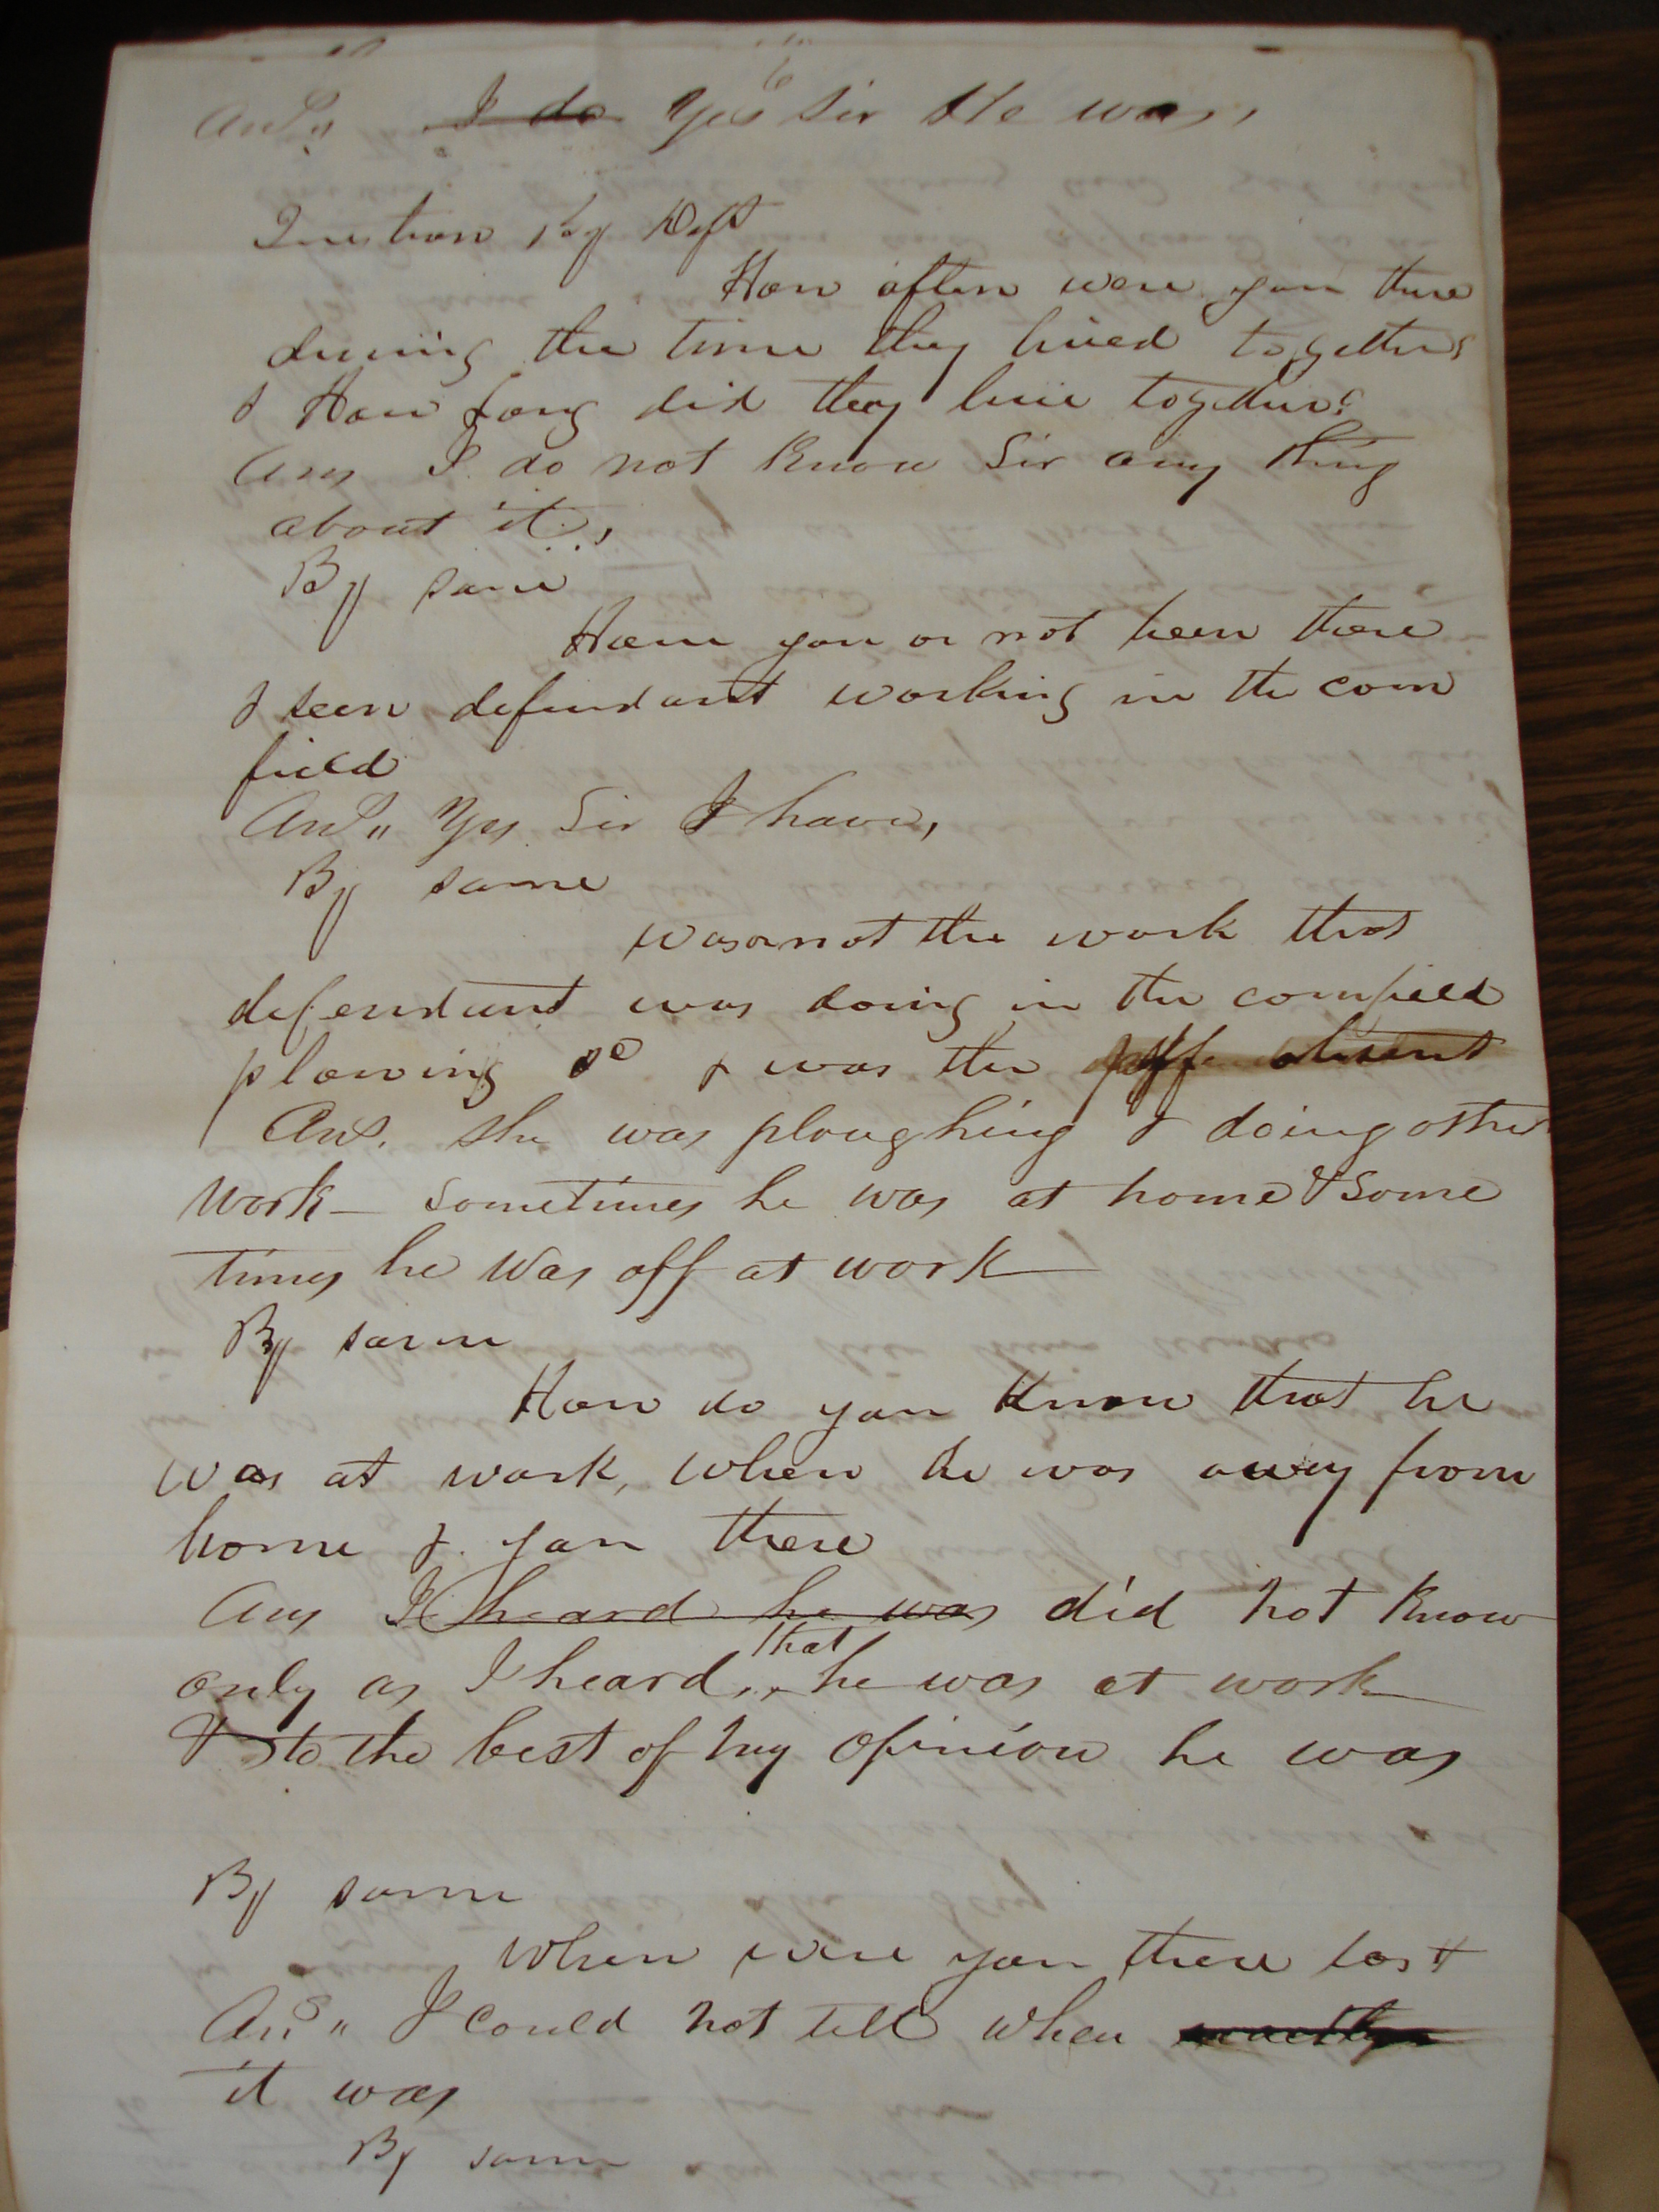 6
Ans" I do Yes Sir He was,
Question By Deft
How often were you there
during the time they lived together
& How long did they live together?
Ans I do not Know Sir any thing
about it,
By same
Have you or not been there
& seen defendant working in the corn
field
Ans" Yes Sir I have,
By same
was or not the work that
defendant was doing in the cornfield
plowing & was the absent
Ans. she was ploughing & doing other
work – sometimes he was at home & some
times he was off at work
By same
How do you know that he
was at work, when he was away from
home & you there
Ans I heard he was did not Know
that
only as I heard, he was at work
& to the best of my opinion he was
By same
When were you there last
Ans" I could not tell when exactly
it was
By same